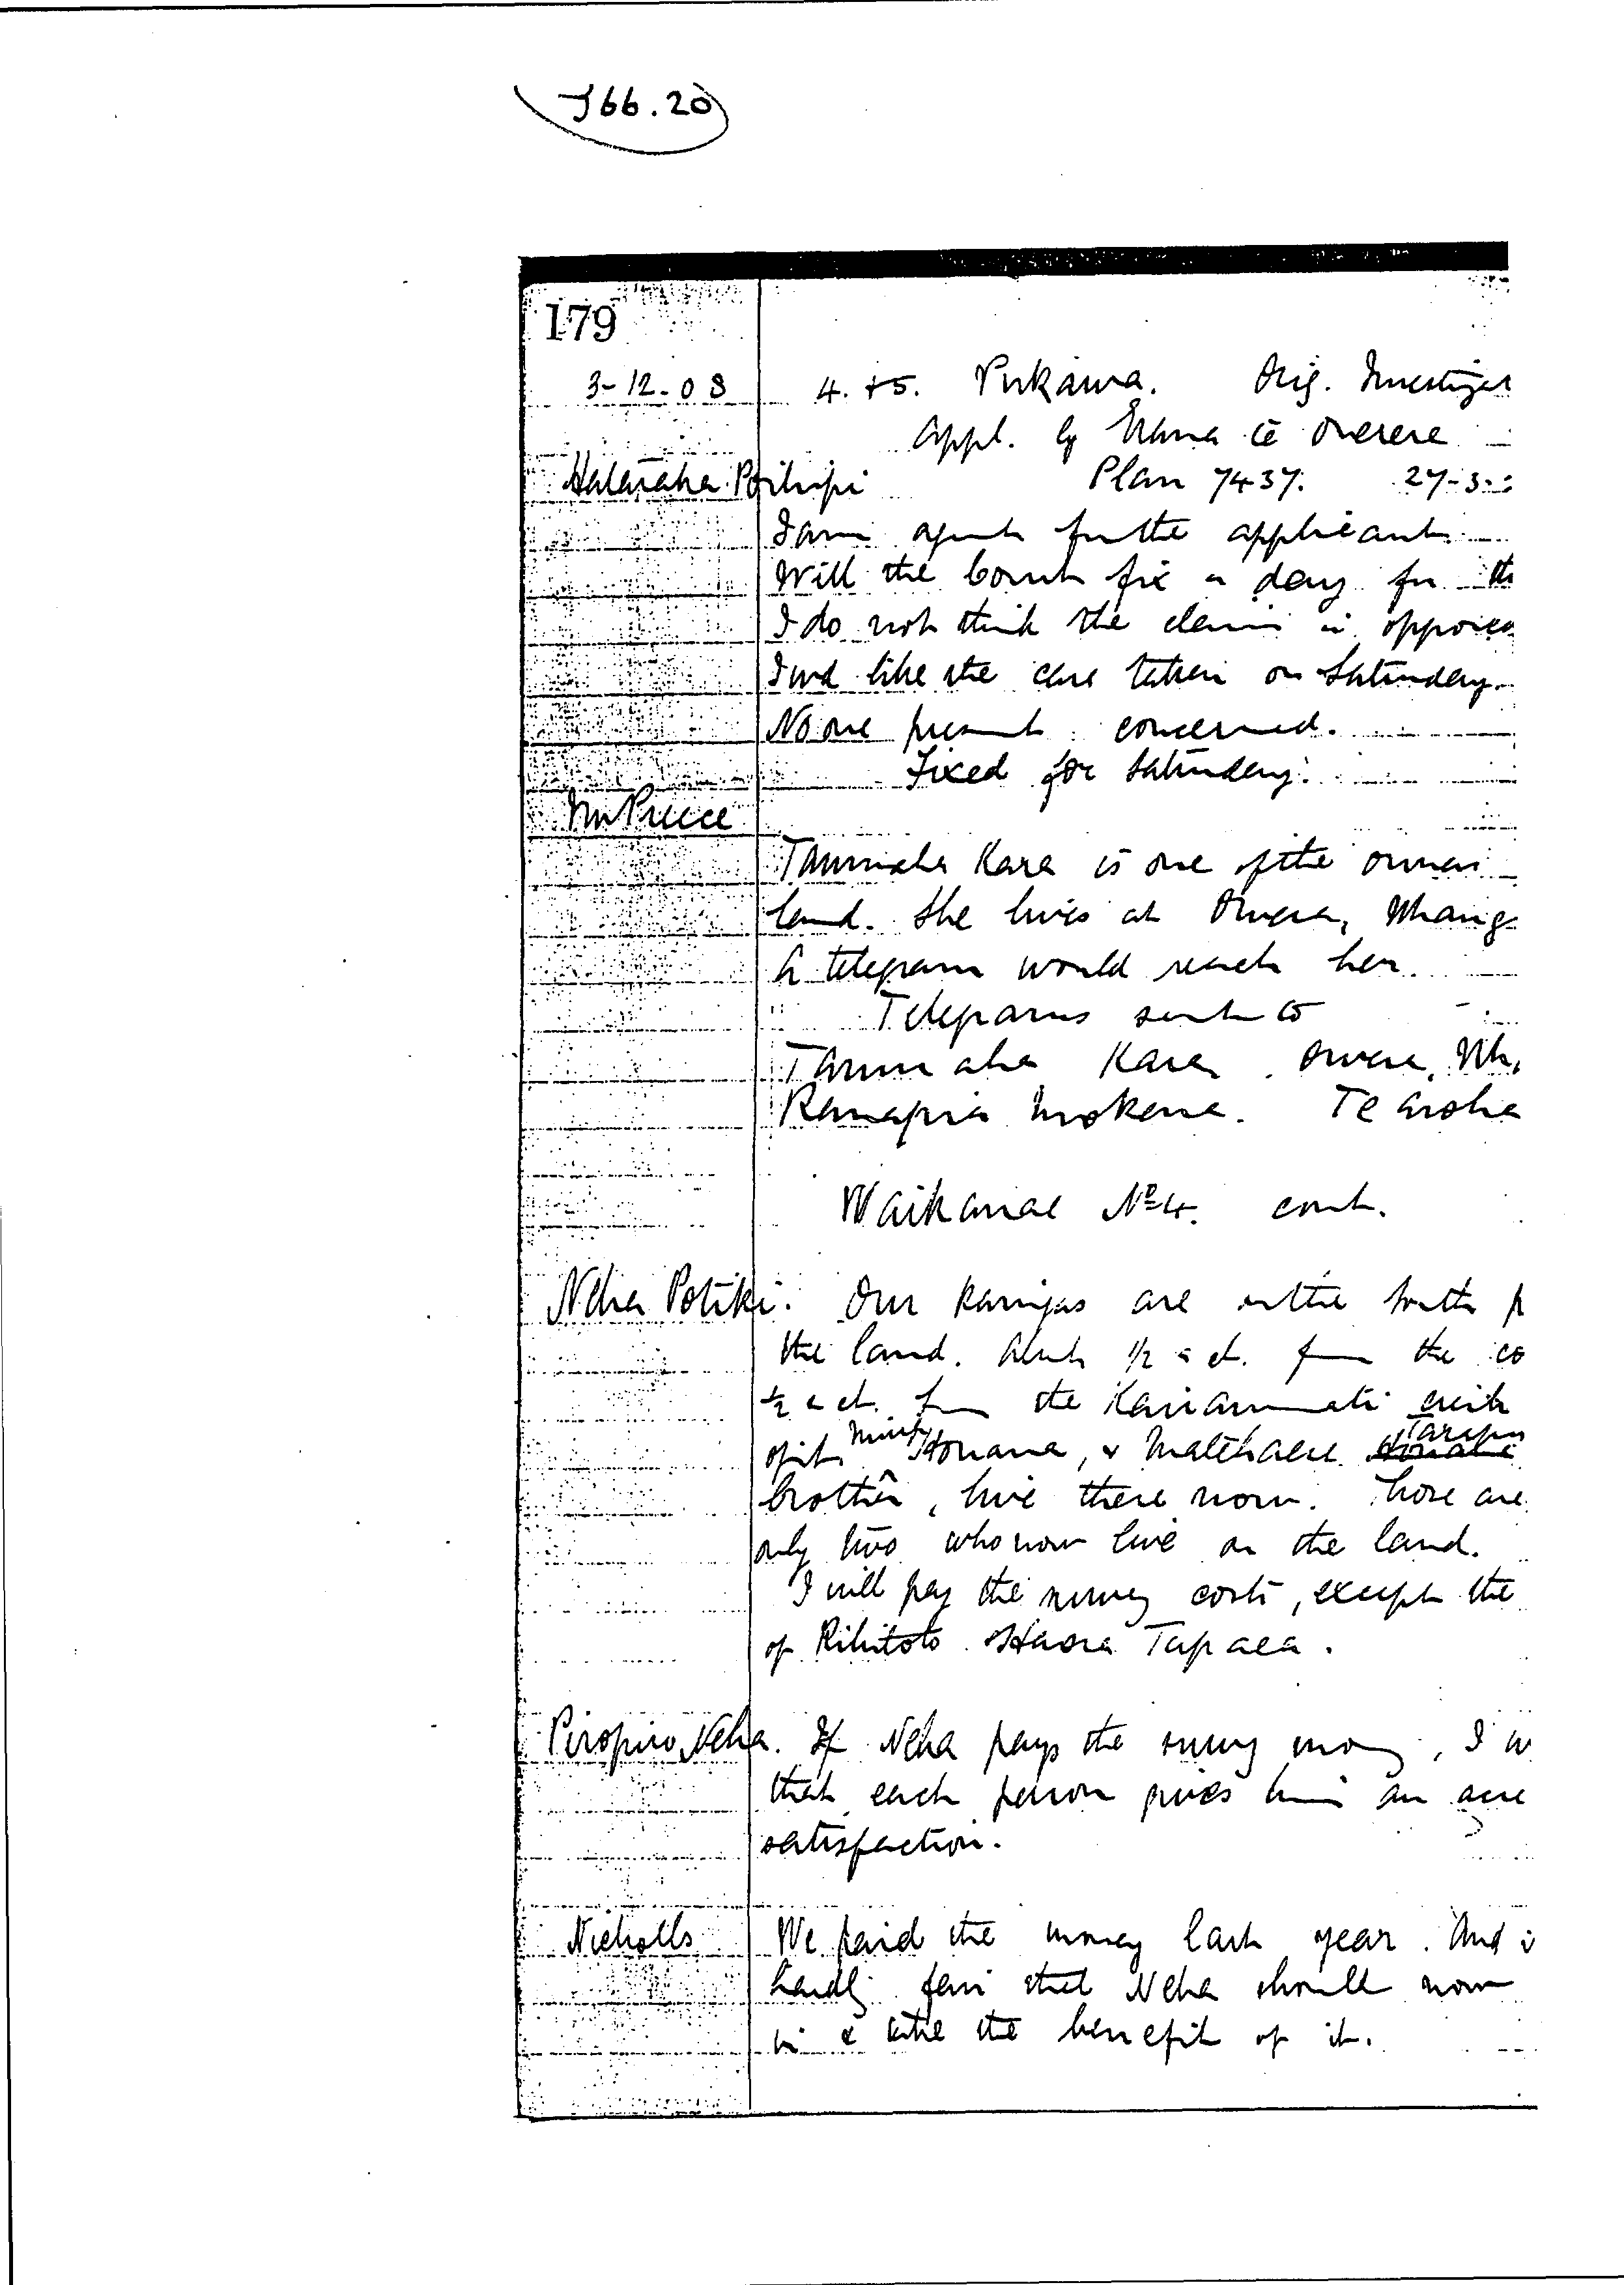 J66.20
179
3-12-08 4. +5. Pukawa. Orig. Investigat
Appl. by Erana te Owerere
Hataraka Poihipi Plan 7437. 27-3-
I am agent for the applicant.
Will the Court fix a day for th
I do not think the claim is opposed
I wd like the case taken on Saturday.
No one present concerned.
Fixed for Saturday.
Mr Preece
Taumaha Kara is one of the owners
land. She lives at Owera, Whang
A telegram would reach her.
Telegrams sent to
Taumaha Kara. Owera, Wh
Ranapia Mokena. Te Aroha
Waikanae No 4. cont.
Neha Potiki. Our kaingas are on the South p
the land. About 1/2 a ch. from the co
1/2 a ch. from the creek
of it. Honana, & Matehaere
brother, live there now. Those are
only two who now live on the land.
I will pay the survey costs, except the
of Rihitoto Haora Tapaea.
Piropiro Neha. If Neha pays the survey money, I w
that each person gives him an acre
satisfaction.
Nicholls We paid the money last year. And i
hardly fair that Neha should now
in & take the benefit of it.